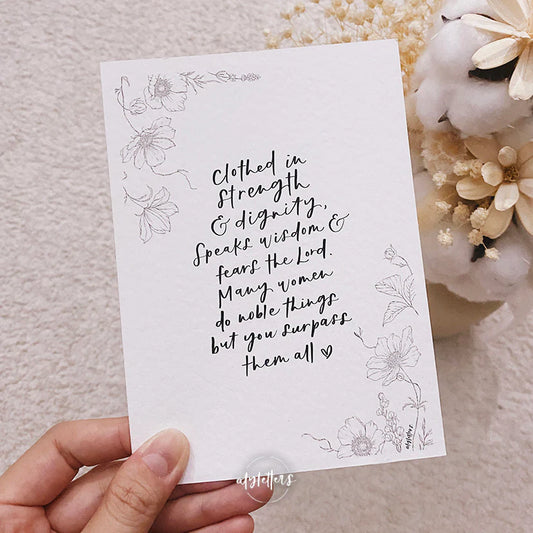 Clothed in
strength
& dignity,
speaks wisdom &
fears the Lord.
Many women
do noble things
but you surpass
them all ♡
atyletters
atyletters